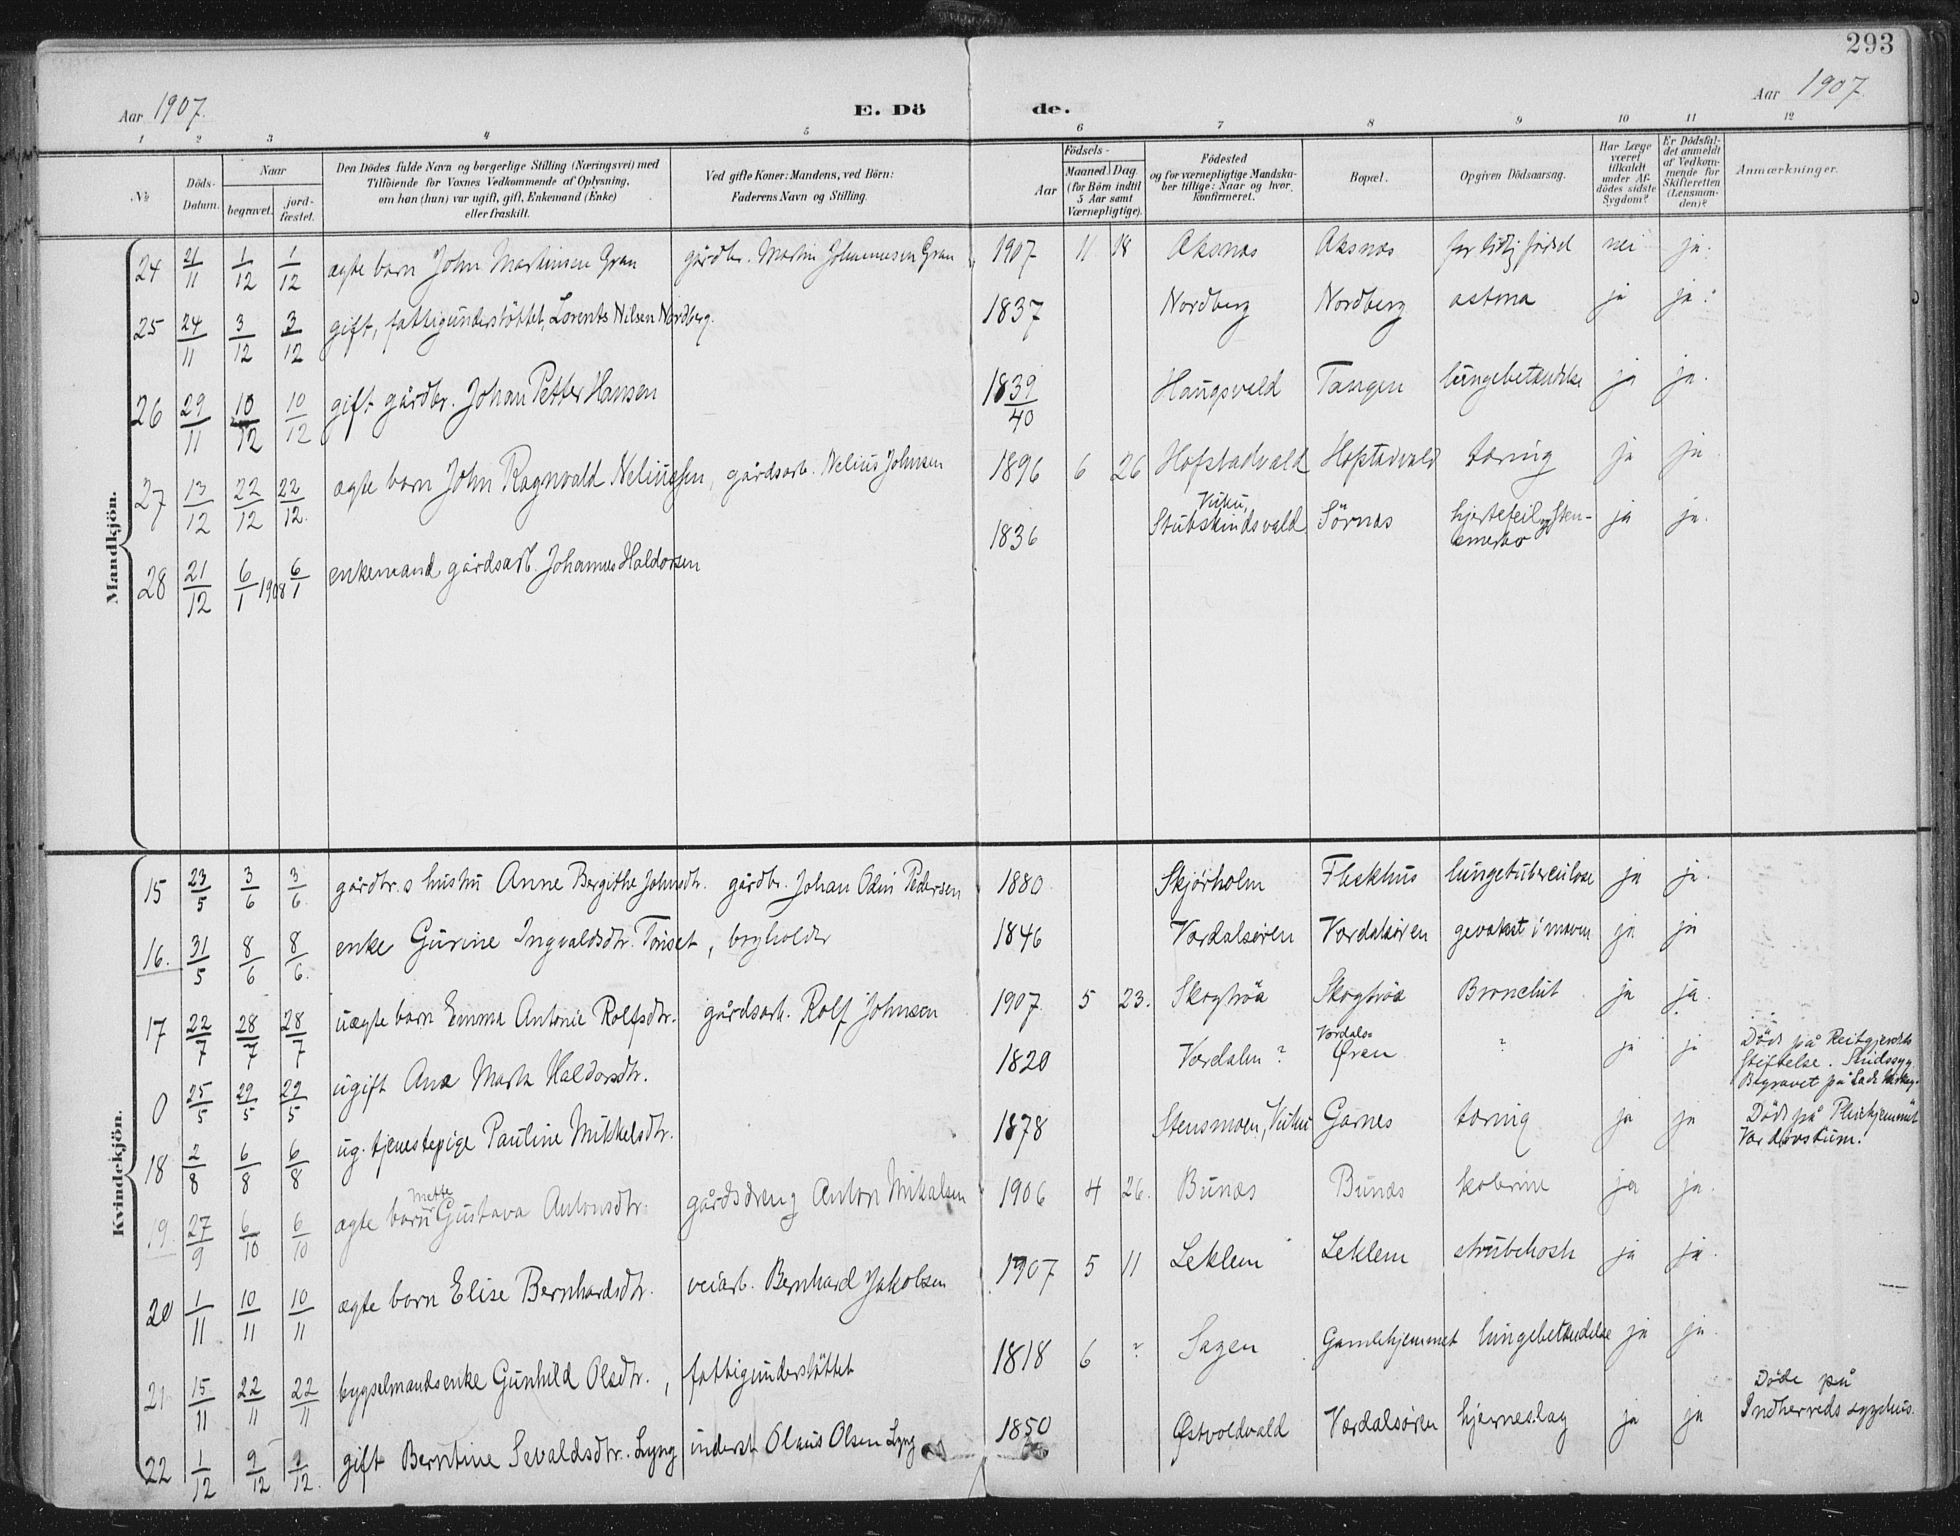 293
Aar 1907.
E. Dö
de.
Aar 1907.
1 2 3 4 5 6 7 8 9 10 11 12
No.
Döds-Datum.
Naar
begravet.
jord-fæstet.
Den Dödes fulde Navn og borgerlige Stilling (Næringsvei) med
Tilföiende for Voxnes Vedkommende af Oplysning,
om han (hun) var ugift, gift, Enkemand (Enke)
eller fraskilt.
Ved gifte Koner: Mandens, ved Börn:
Faderens Navn og Stilling.
Födsels-
Aar
Maaned Dag
(for Börn indtil
5 Aar samt
Værnepligtige).
Födested
og for værnepligtige Mandska-
ber tillige: Naar og hvor
konfirmeret.
Bopæl.
Opgiven Dödsaarsag.
Har Læge
været
tilkaldt
under Af-
dödes sidste
Sygdom?
Er Dödsfal-
det anmeldt
af Vedkom-
mende for
Skifteretten
(Lensman-
den)?
Anmærkninger.
Mandkjön.
24 21/11 1/12 1/12 ægte barn John Martinsen Gran gårdbr. Martin Johannesen Gran 1907 11 18 Aksnæs Aksnæs for tidlig födsel nei ja.
25 24/11 3/12 3/12 gift, fattigunderstöttet, Lorents Nilsen Nordberg. 1837 Nordberg Nordberg astma ja ja.
26 29/11 10/12 10/12 gift gårdbr. Johan Petter Hansen 1839/40 Haugsvald Tangen lungebetændelse ja ja.
27 13/12 22/12 22/12. ægte barn John Ragnvald Neliussen, gårdsarb. Nelius Johnsen 1896 6 26 Hofstadvald Hofstadvald tæring ja ja
28 21/12 6/1 1908 6/1 enkemand gårdsarb. Johannes Haldorsen 1836 Vuku, Stubskindsvald Sörnæs hjertefeil og ja ja.
Kvindekjön.
15 23/5 3/6 3/6 gårdbr.s hustru Anne Bergithe Johnsdtr. gårdbr. Johan Odin Pedersen 1880 Skjörholm Flekkhus lungetuberculose ja ja.
16. 31/5 8/6 8/6. enke Gurine Ingvaldsdtr. Tönset, 1846 Værdalsören Værdalsören gevækst i maven ja ja
17 22/7 28/7 28/7 uægte barn Emma Antonie Rolfsdtr. gårdsarb. Rolf Johnsen 1907 5 23. Skogtröa Skogtröa Bronchit ja ja.
0 25/5 29/5 29/5 ugift Ane Marta Haldorsdtr. 1820 Værdalen? Værdals-Øren ? ja ja Döde på Reitgjerdets Stiftelse. Begravet på Lade
18 2/8 6/8 6/8 ug. tjenestepige Pauline Mikkelsdtr. 1878 Stensmoen, Vuku Garnes tæring ja ja Döde på Pleiehjemmet
19. 27/9 6/10 6/10 ægte barn Mette Gustava Antonsdtr. gårdsdreng Anton Mikalsen 1906 4 26. Bunæs Bunæs kolerine ja ja.
20 1/11 10/11 10/11 ægte barn Elise Bernhardsdtr. veiarb. Bernhard Jakobsen 1907 5 11 Leklem Leklem strubehoste ja ja.
21 15/11 22/11 22/11 bygselmandsenke Gunhild Olsdtr., fattigunderstöttet 1818 6 ? Sagen Gamlehjemmet lungebetændelse ja ja.
22 1/12 9/12 9/12. gift Berntine Sevaldsdtr. Lyng inderst Olaus Olsen Lyng 1850 Østvoldvald Værdalsören hjerneslag ja ja Döde på Indherreds sygehus.